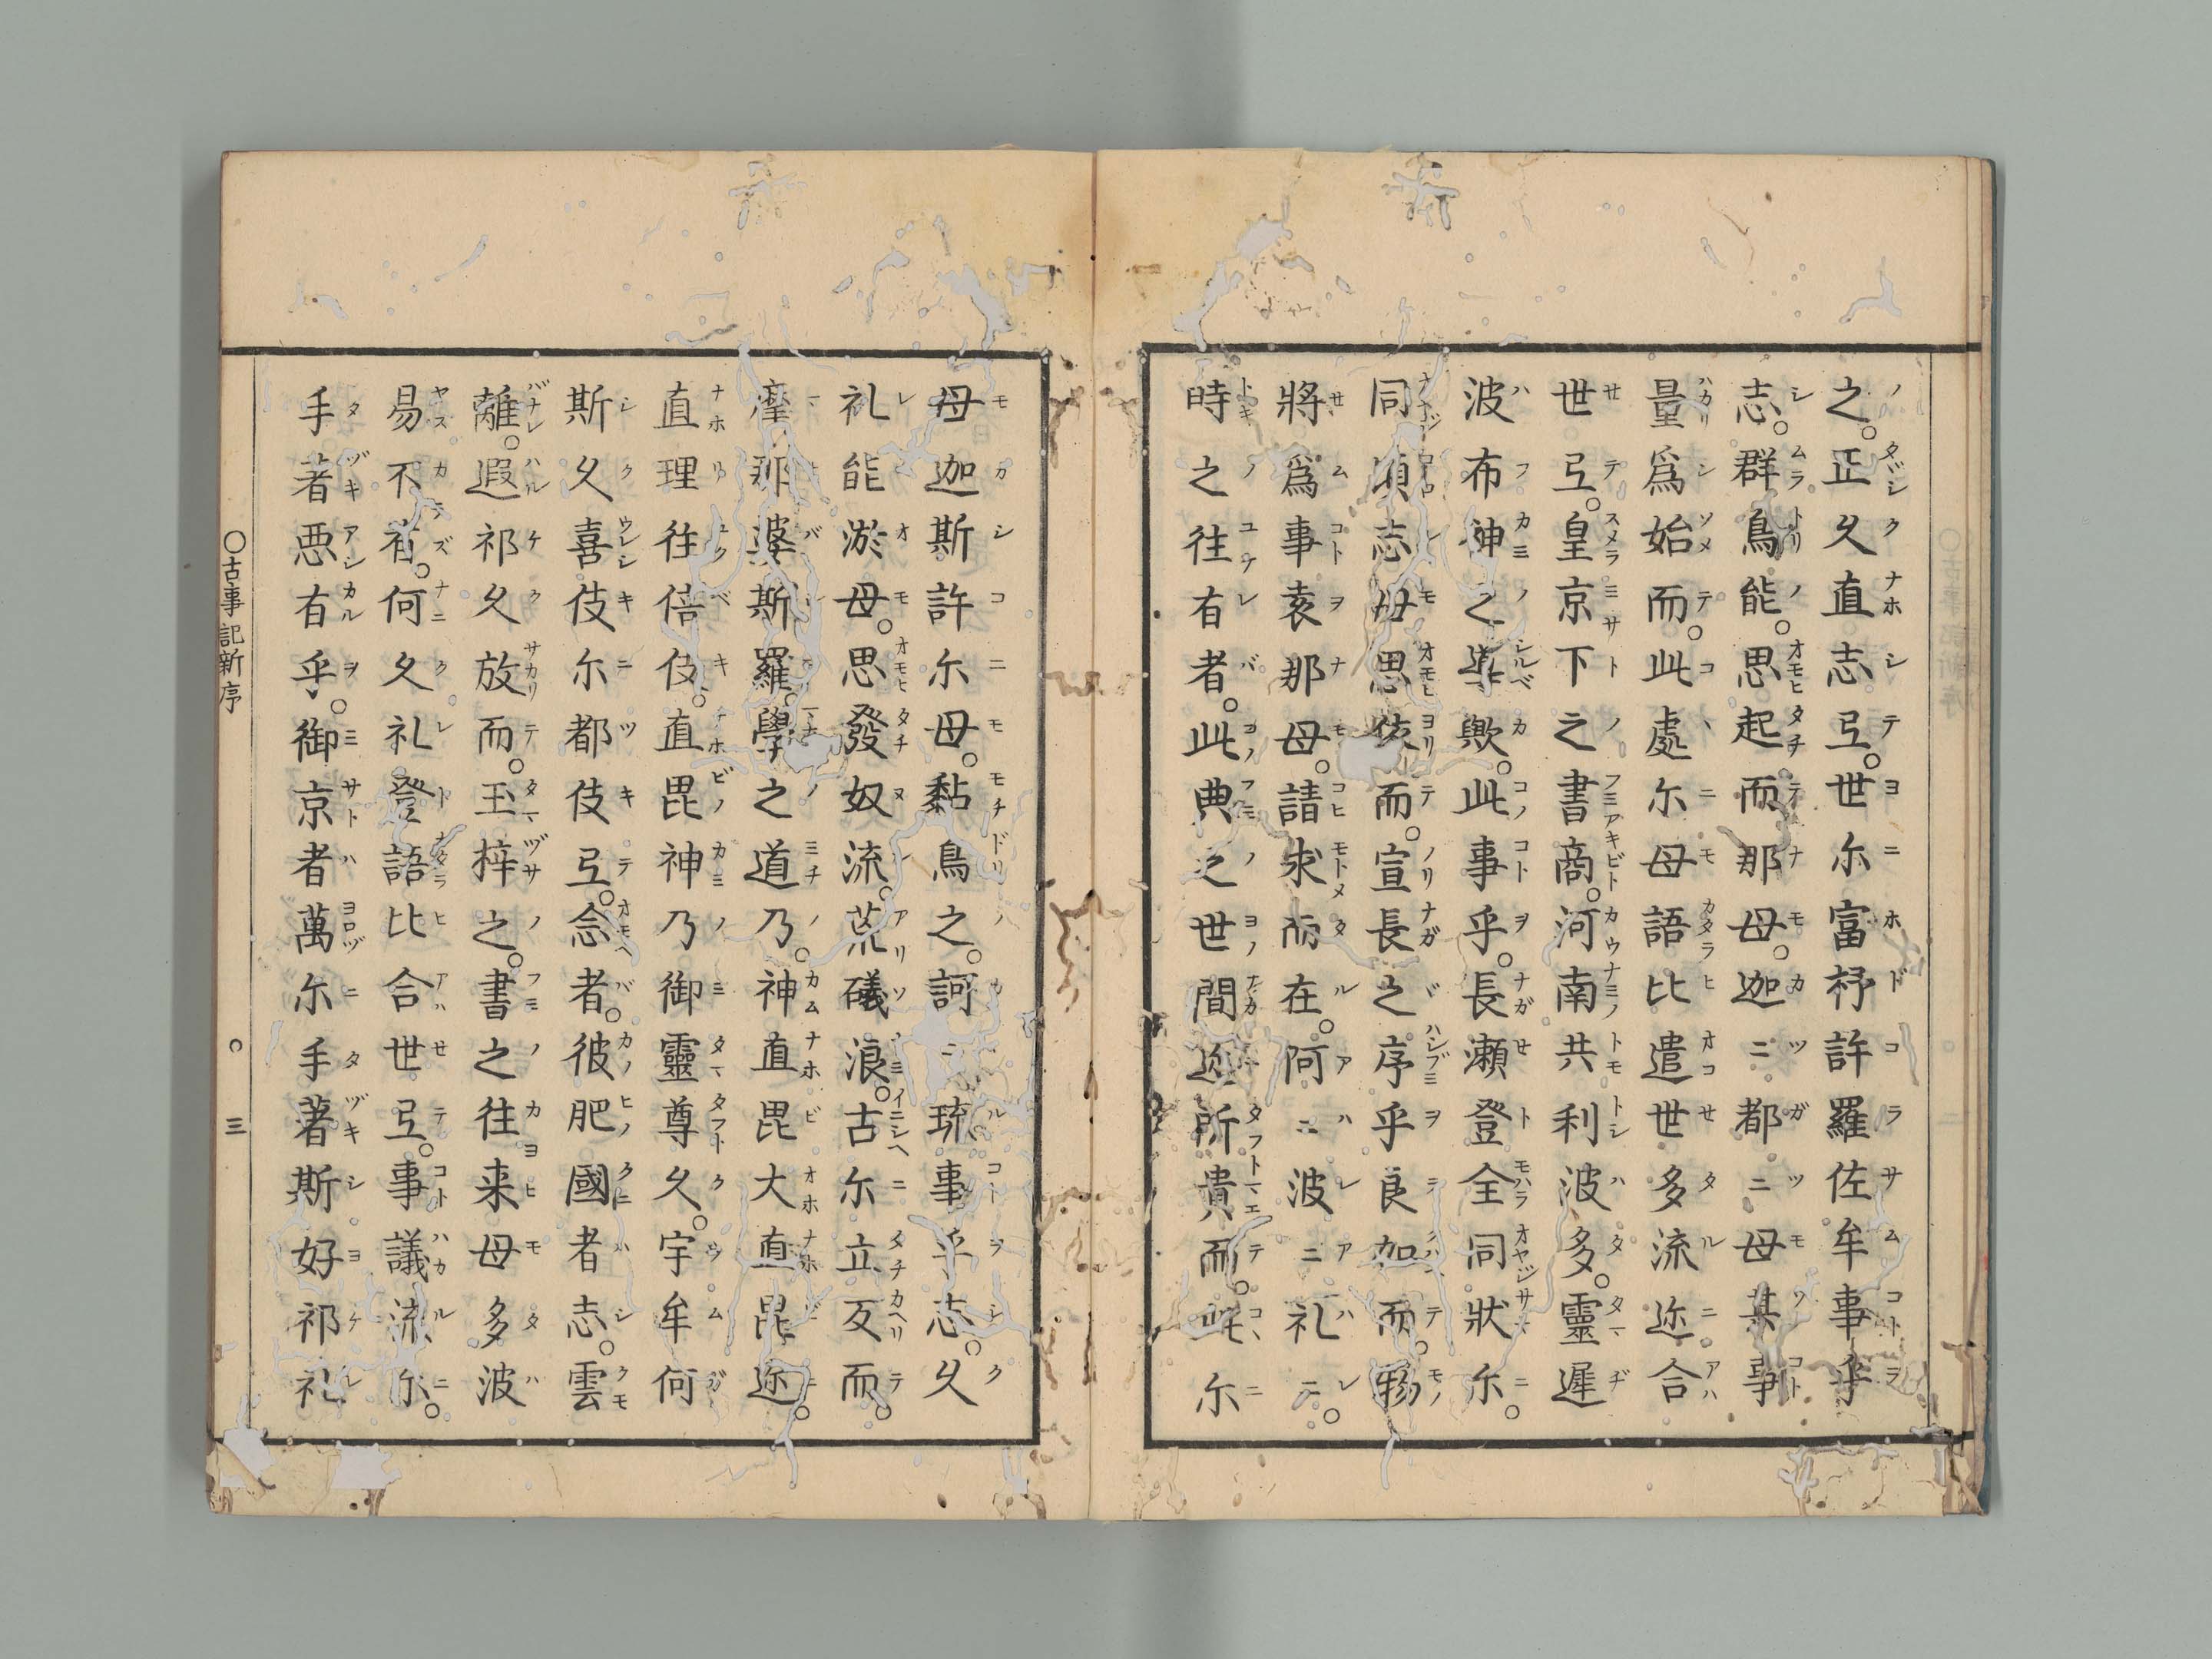 之。正久直志弖。世尓富杼許羅佐牟事乎
志。群鳥能。思起而那母。迦ニ都ニ母某事
量爲始而。此處尓母語比遣世多流迩合
世弖。皇京下之書商。河南共利波多。靈遲
波布神之導歟。此事乎。長瀬登全同狀尓。
同慎志母思依而。宣長之序乎良加而。物
將爲事袁那母。請求而在。阿ニ波ニ礼ニ。
時之往有者。此典之世間迩所貴而。此尓
母迦斯許尓母。黐鳥之。訶琉事乎志。久
礼能淤母。思發奴流。荒礒浪。古尓立反而。
麼那婆斯羅。學之道乃。神直毘大直毘迩。
直理往倍伎。直毘神乃御靈尊久。宇牟何
斯久喜伎尓都伎弖。念者。彼肥國者志。雲
離。遐祁久放而。玉梓之。書之往来母多波
易不有。何久礼登語比合世弖。事議流尓。
手著悪有乎。御京者萬尓手著斯好祁礼
〇古事記新序 三